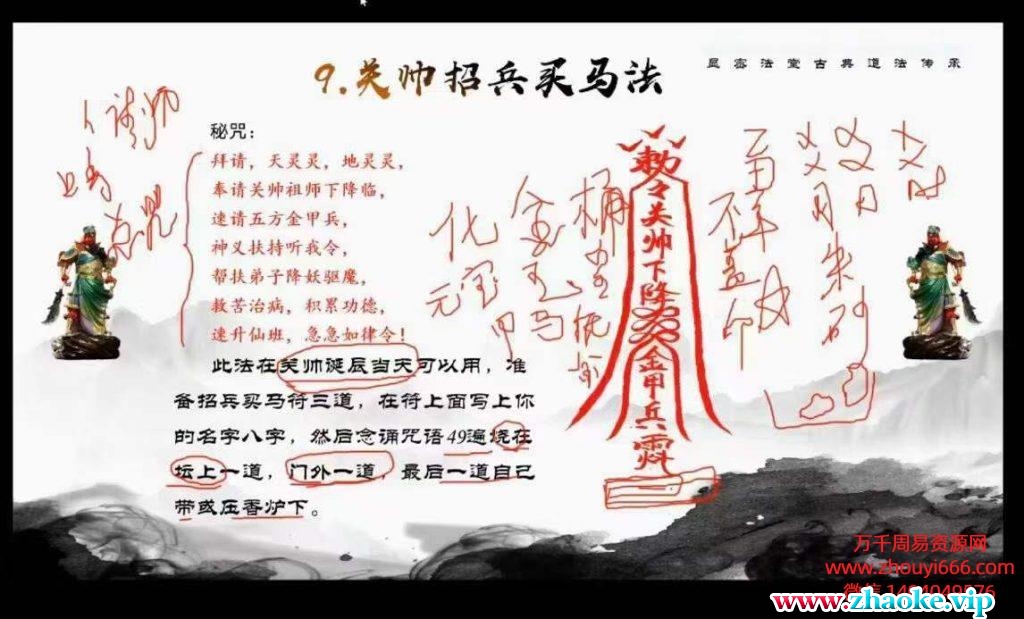 9.关帅招兵买马法
显密法堂古典道法传承
秘咒：
拜请，天灵灵，地灵灵，
奉请关帅祖师下降临，
速请五方金甲兵，
神义扶持听我令，
帮扶弟子降妖驱魔，
救苦治病，积累功德，
速升仙班，急急如律令！
此法在关帅诞辰当天可以用，准
备招兵买马符三道，在符上面写上你
的名字八字，然后念诵咒语49遍烧在
坛上一道，门外一道，最后一道自己
带或压香炉下。
请师
总咒
化
元宝
甲马
敕
令
关
帅
下
降
金
甲
兵
朱砂
盖
印
万千周易资源网
www.zhouyi666.com
www.zhaoke.vip